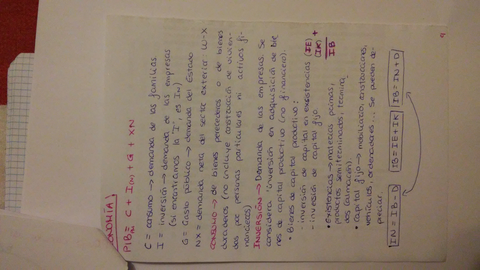 PIB = C + I(N) + G + XN
C = consumo → demanda de las familias
I = inversión → demanda de las empresas
(si encontramos la I, es IN)
G = Gasto público → demanda del Estado
NX = demanda neta del sector exterior
CONSUMO → de bienes perecederos o de bienes
duraderos (no incluye construcción de vivien-
das por personas particulares ni activos fi-
nancieros)
INVERSIÓN → Demanda de las empresas. Se
considera "inversión en adquisición de bie
nes de capital productivo (no financiero).
• Bienes de capital productivo:
- inversión de capital en existencias (IE) +
- inversión de capital fijo (IK)
IB
• Existencias → materias primas,
productos semiterminados, termina
dos
• Capital fijo → maquinaria, instalaciones,
vehículos, ordenadores... Se pueden de-
preciar.
IN = IB - D
IB = IE + IK
IB = IN + D